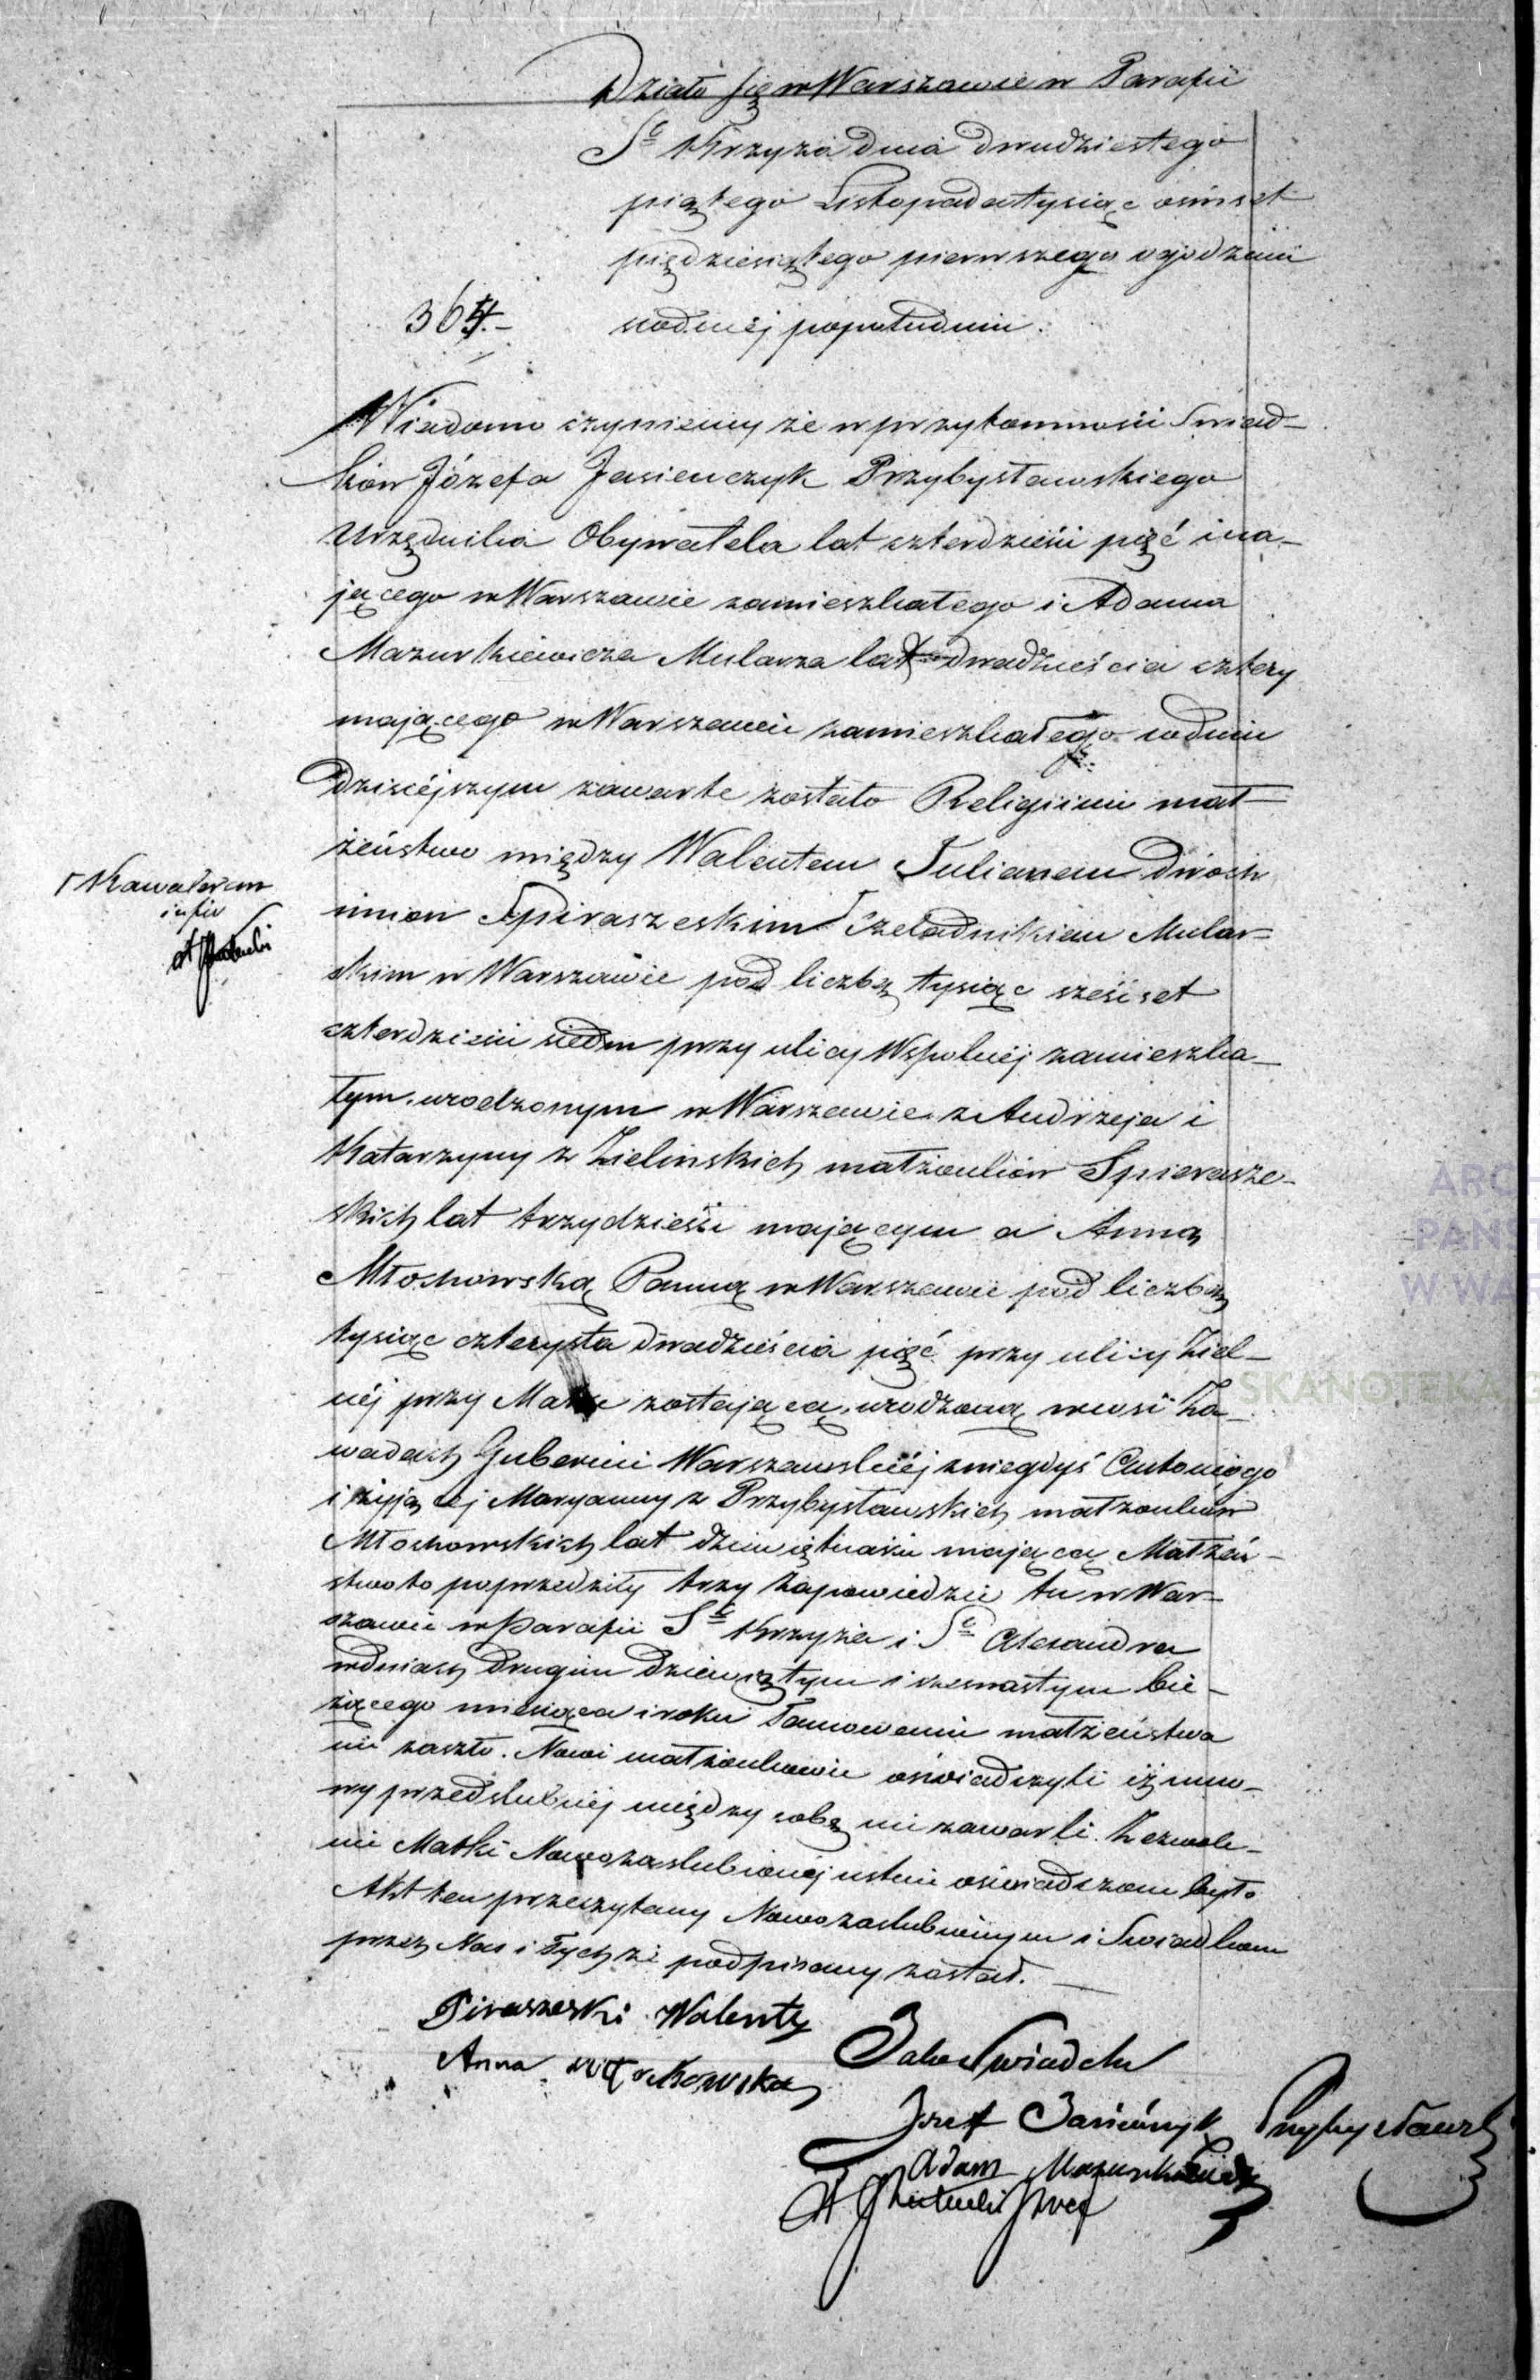 Działo się w Warszawie w Parafii
Sgo Krzyża dnia dwudziestego
piątego Listopada tysiąc ośmset
piędziesiątego pierwszego o godzinie
siódméj popołudniu.
Wiadomo czyniemy że w przytomności Swiad-
ków Józefa Jasienczyk Przybysławskiego
Urzędnika Obywatela lat czterdzieści pięć ma-
jącego w Warszawie zamieszkałego i Adama
Mazurkiewicza Mularza lat dwadzieścia cztery
mającego w Warszawie zamieszkałego w dniu
dzisiéjszym zawarte zostało Religijnie mał-
żeństwo między Walentem Julianem dwoch
imion Spiraszeskim Czeladnikiem Mular-
Kawalerem
skim w Warszawie pod liczbą tysiąc sześćset
czterdzieści siedm przy ulicy Wspolnéj zamieszka-
łym, urodzonym w Warszawie z Andrzeja i
Katarzyny z Zielinskich małżonków Spierasze-
skich lat trzydzieści mającym a Anną
Młochowską Panną w Warszawie pod liczbą
tysiąc czterysta dwadzieścia pięć przy ulicy Ziel-
néj przy Matce zostającą, urodzoną we wsi Za-
wadach Gubernii Warszawskiéj z niegdyś Antoniego
i żyjącej Maryanny z Przybysławskich małżonków
Młochowskich lat dziewiętnaście mającą Małżeń-
stwo to poprzedziły trzy zapowiedzie tu w War-
szawie w Parafii Sgo Krzyża i Sgo Alexandra
w dniach drugim dziewiątym i szesnastym bie-
żącego miesiąca i roku Tamowanie małżeństwa
nie zaszło. Nowi małżonkowie oświadczyli iż umo-
wy przedślubnéj między sobą nie zawarli. Zezwole-
nie Matki Nowozaslubionéj ustnie oświadczone było
Akt ten przeczytany Nowozaslubionym i Swiadkom
przez Nas i Tychże podpisany został.
Piraszeski Walenty
Anna Młochowska
Jako Swiadek
Jozef Jasieńczyk Przybysławski
Adam Mazurkiewicz